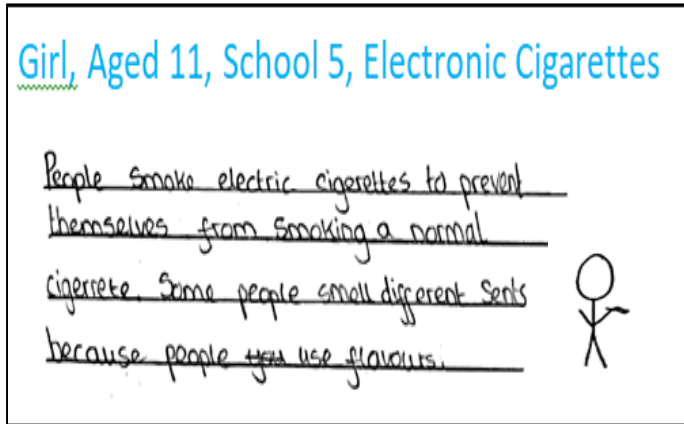 Girl, Aged 11, School 5, Electronic Cigarettes
People smoke electric cigerettes to prevent
themselves from smoking a normal
cigerrete. Some people smell different Sents
because people you use flavours.